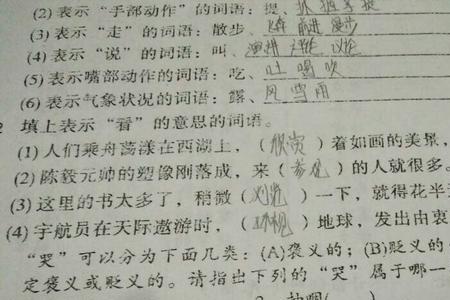 (2)表示“手部动作”的词语：提、抓
(3)表示“走”的词语：散步、飞奔 前进 漫步
(4)表示“说”的词语：叫、演讲 讨论 议论
(5)表示嘴部动作的词语：吃、吐 喝 吹
(6)表示气象状况的词语：露、风 雪 雨
填上表示“看”的意思的词语。
(1)人们乘舟荡漾在西湖上，（欣赏）着如画的美景，
(2)陈毅元帅的塑像刚落成，来（参观）的人就很多。
(3)这里的书太多了，稍微（浏览）一下，就得花半
(4)宇航员在天际遨游时，（环视）地球，发出由衷
“哭”可以分为下面几类：(A)褒义的；(B)贬义的
定褒义或贬义的。请指出下列的“哭”属于哪一